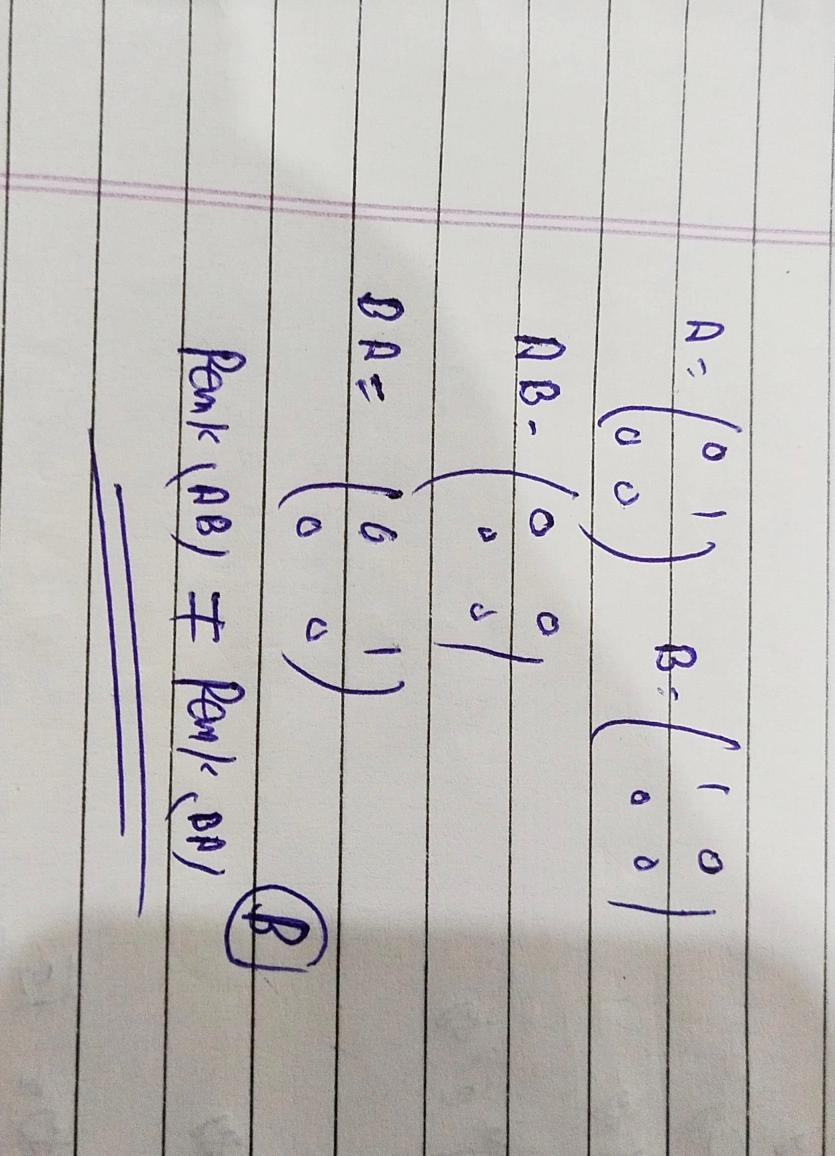 A = (0 1
0 0) B = (1 0
0 0)
AB = (0 0
0 0)
BA = (0 1
0 0)
Rank (AB) ≠ Rank (BA)
B